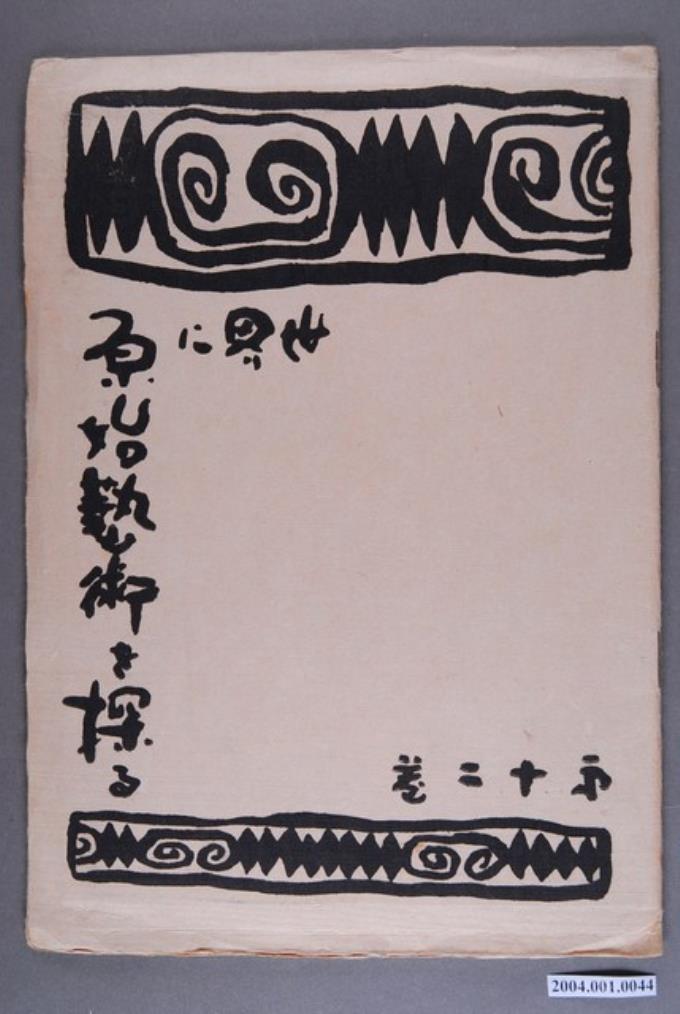 世界に
原始藝術を探る
第十二巻
2004.001.0044